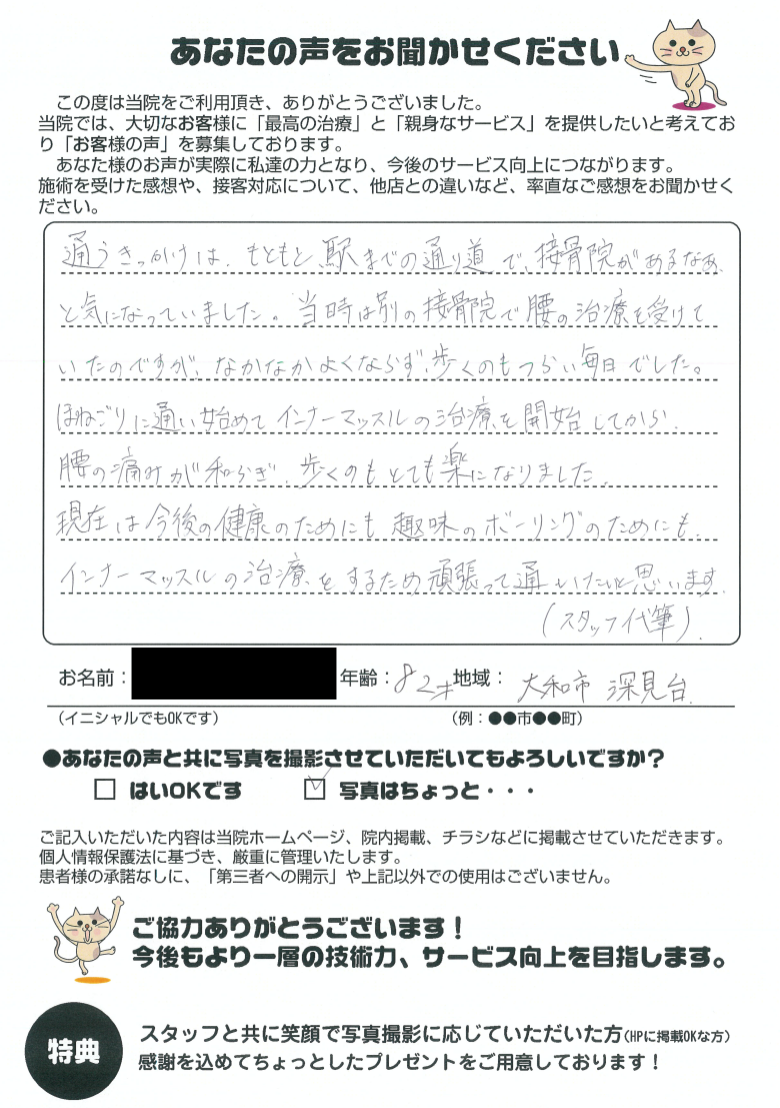 あなたの声をお聞かせください
この度は当院をご利用頂き、ありがとうございました。
当院では、大切なお客様に「最高の治療」と「親身なサービス」を提供したいと考えてお
り「お客様の声」を募集しております。
あなた様のお声が実際に私達の力となり、今後のサービス向上につながります。
施術を受けた感想や、接客対応について、他店との違いなど、率直なご感想をお聞かせく
ださい。
通うきっかけは、もともと駅までの通り道で、接骨院があるなあ
と気になっていました。当時は別の接骨院で腰の治療を受けて
いたのですが、なかなかよくならず、歩くのもつらい毎日でした。
ほねごりに通い始めてインナーマッスルの治療を開始してから
腰の痛みが和らぎ、歩くのもとても楽になりました。
現在は今後の健康のためにも趣味のボーリングのためにも、
インナーマッスルの治療をするため頑張って通いたいと思います
(スタッフ代筆).
お名前: 年齢:82才 地域: 大和市 深見台
(イニシャルでもOKです) (例:●●市●●町)
●あなたの声と共に写真を撮影させていただいてもよろしいですか?
□ はいOKです ☑ 写真はちょっと・・・
ご記入いただいた内容は当院ホームページ、院内掲載、チラシなどに掲載させていただきます。
個人情報保護法に基づき、厳重に管理いたします。
患者様の承諾なしに、「第三者への開示」や上記以外での使用はございません。
ご協力ありがとうございます!
今後もより一層の技術力、サービス向上を目指します。
特典
スタッフと共に笑顔で写真撮影に応じていただいた方(HPに掲載OKな方)
感謝を込めてちょっとしたプレゼントをご用意しております!